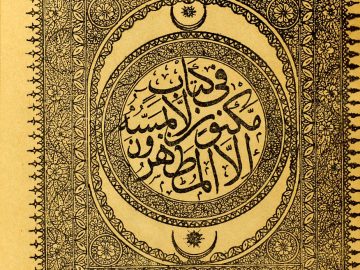 في كتاب
مكنون لا يمسه
إلا المطهرون